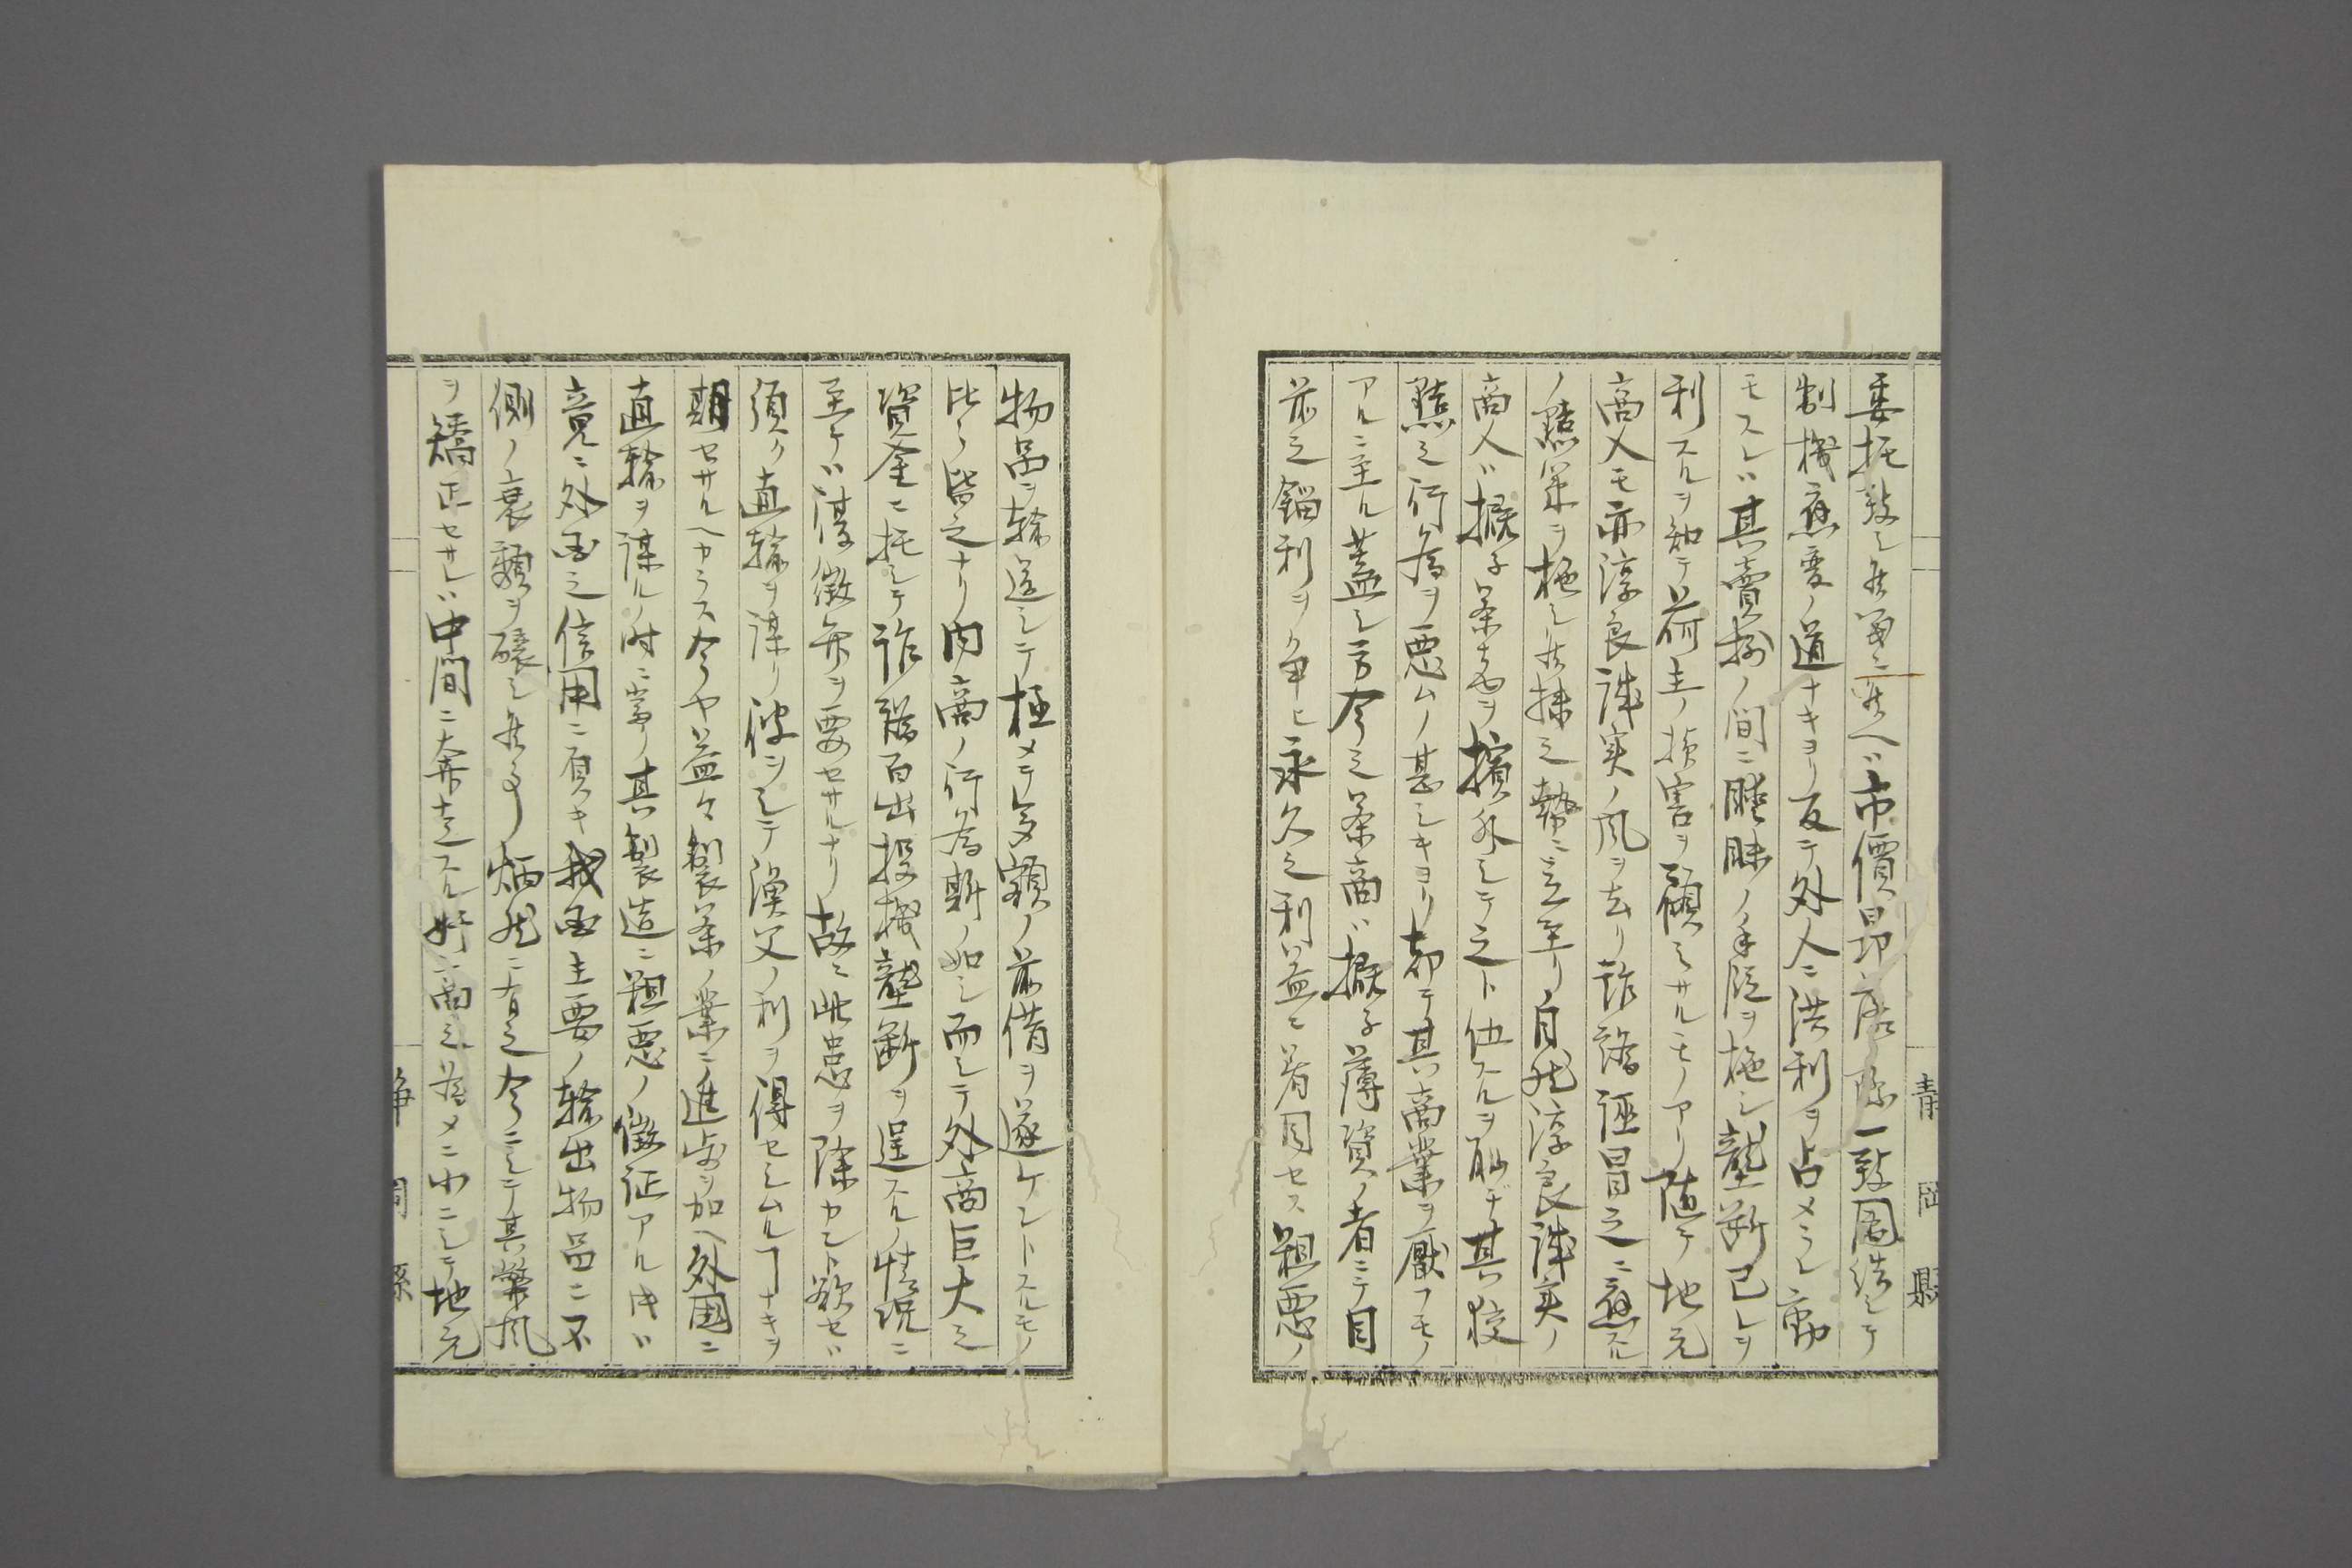 委托致シ候団ニ候ヘハ市價昂底ノ際一致團結シテ
制機應変ノ道ナキヨリ反テ外人ニ洪利ヲ占メラレ動
モスレハ其賣捌ノ間ニ曖昧ノ手段ヲ施シ壟断己レヲ
利スルヲ知テ荷主ノ損害ヲ顧ミサルモノアリ随テ地元
商人モ亦淳良誠実ノ風ヲ去リ詐譎誣冒之ニ應スル
ノ黠策ヲ施シ候様之勢ニ立至リ自然淳良誠実ノ
商人ハ概子茶商ヲ擯外シテ之ト伍スルヲ恥ヂ其狡
黠之行為ヲ悪ムノ甚シキヨリ却テ其商業ヲ厭フモノ
アルニ至ル蓋シ方今之茶商ハ概子薄資ノ者ニテ目
前之錙利ヲ争ヒ永久之利益ニ着目セス粗悪ノ
物品ヲ輸送シテ極メテ多額ノ前借ヲ遂ケントスルモノ
比々皆之ナリ内商ノ行為斯ノ如シ而シテ外商巨大之
資金ニ托シテ詐譎百出投機壟断ヲ逞スルノ情況ニ
至テハ復徴弁ヲ要セサルナリ故ニ此患ヲ除カント欲セハ
須ク直輸ヲ謀リ彼ヲシテ漁父ノ利ヲ得セシムルヿナキヲ
期セサルヘカラス今ヤ益々製茶ノ業ニ進歩ヲ加ヘ外國ニ
直輸ヲ謀ルノ時ニ当リ其製造ニ粗悪ノ徴証アルトキハ
竟ニ外国之信用ニ負キ我国主要ノ輸出物品ニ不
側ノ衰頽ヲ醸シ候事炳然ニ有之今ニシテ其弊風
ヲ矯正セサレハ中間ニ奔走スル奸商之為メニ小ニシテ地元
静岡縣